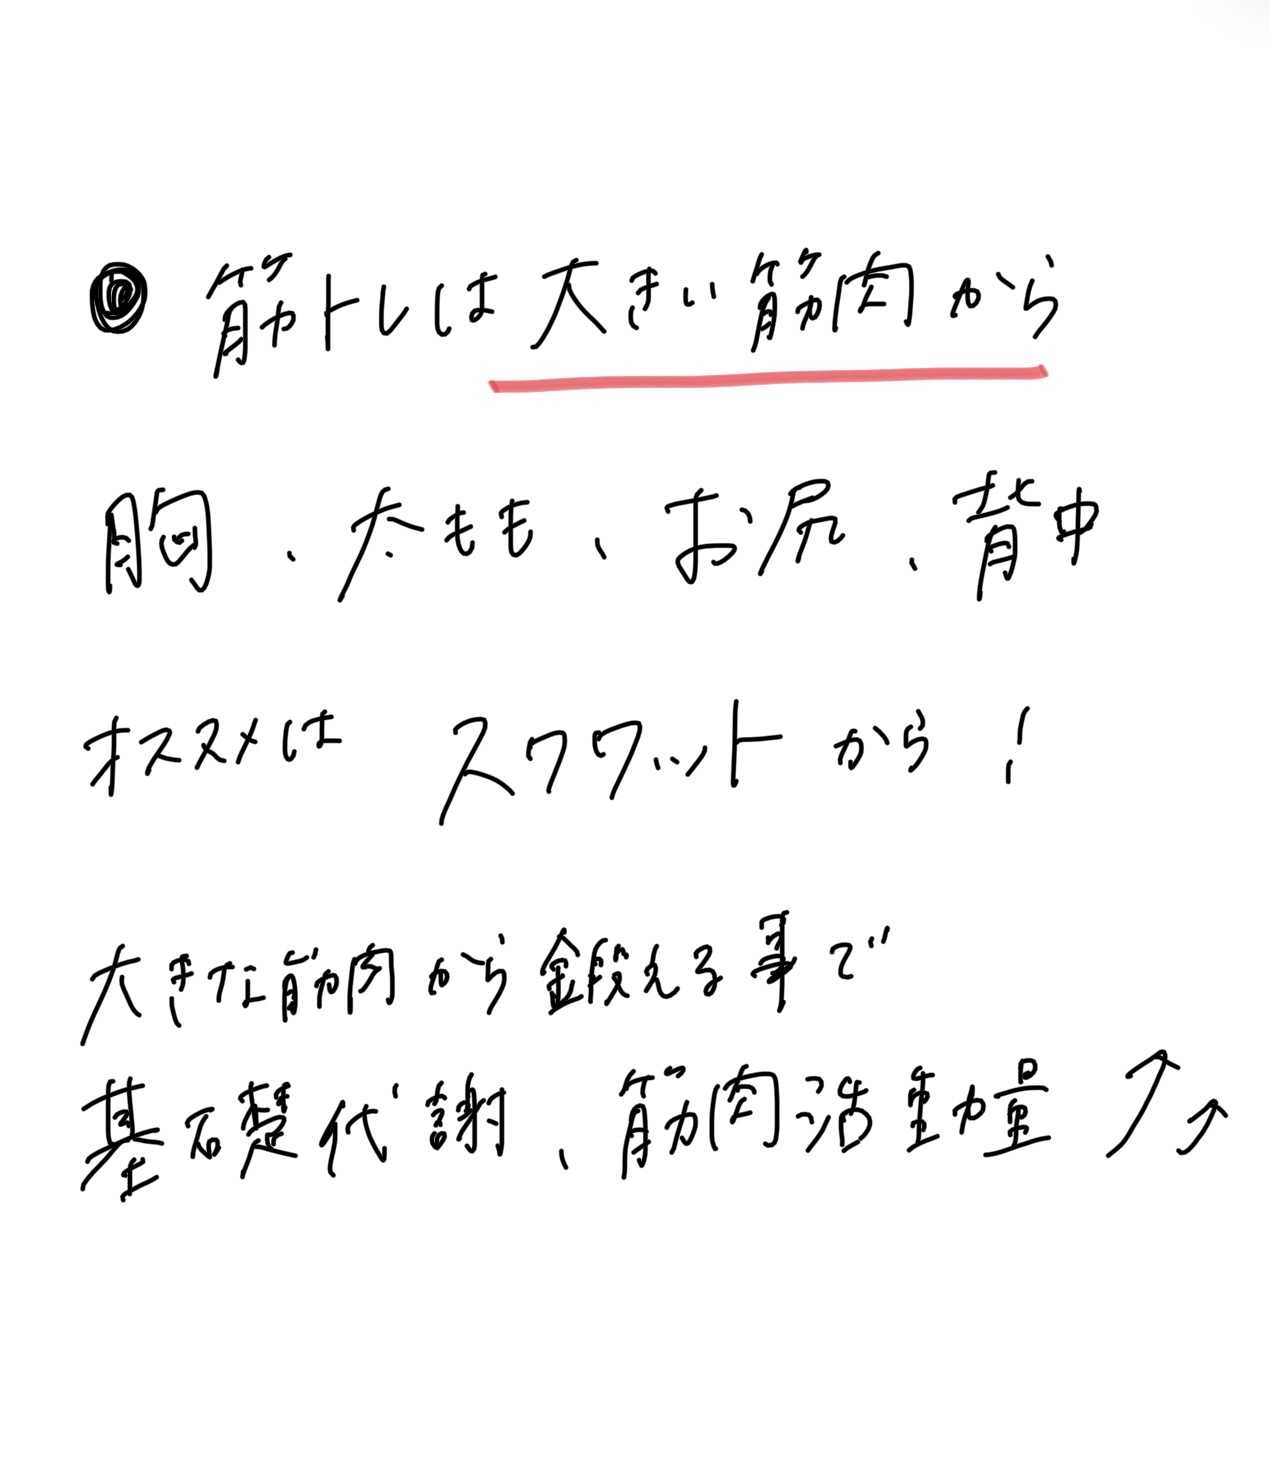 ● 筋トレは大きい筋肉から
胸、太もも、お尻、背中
オススメは スクワットから!
大きな筋肉から鍛える事で
基礎代謝、筋肉活動量 ↗↗